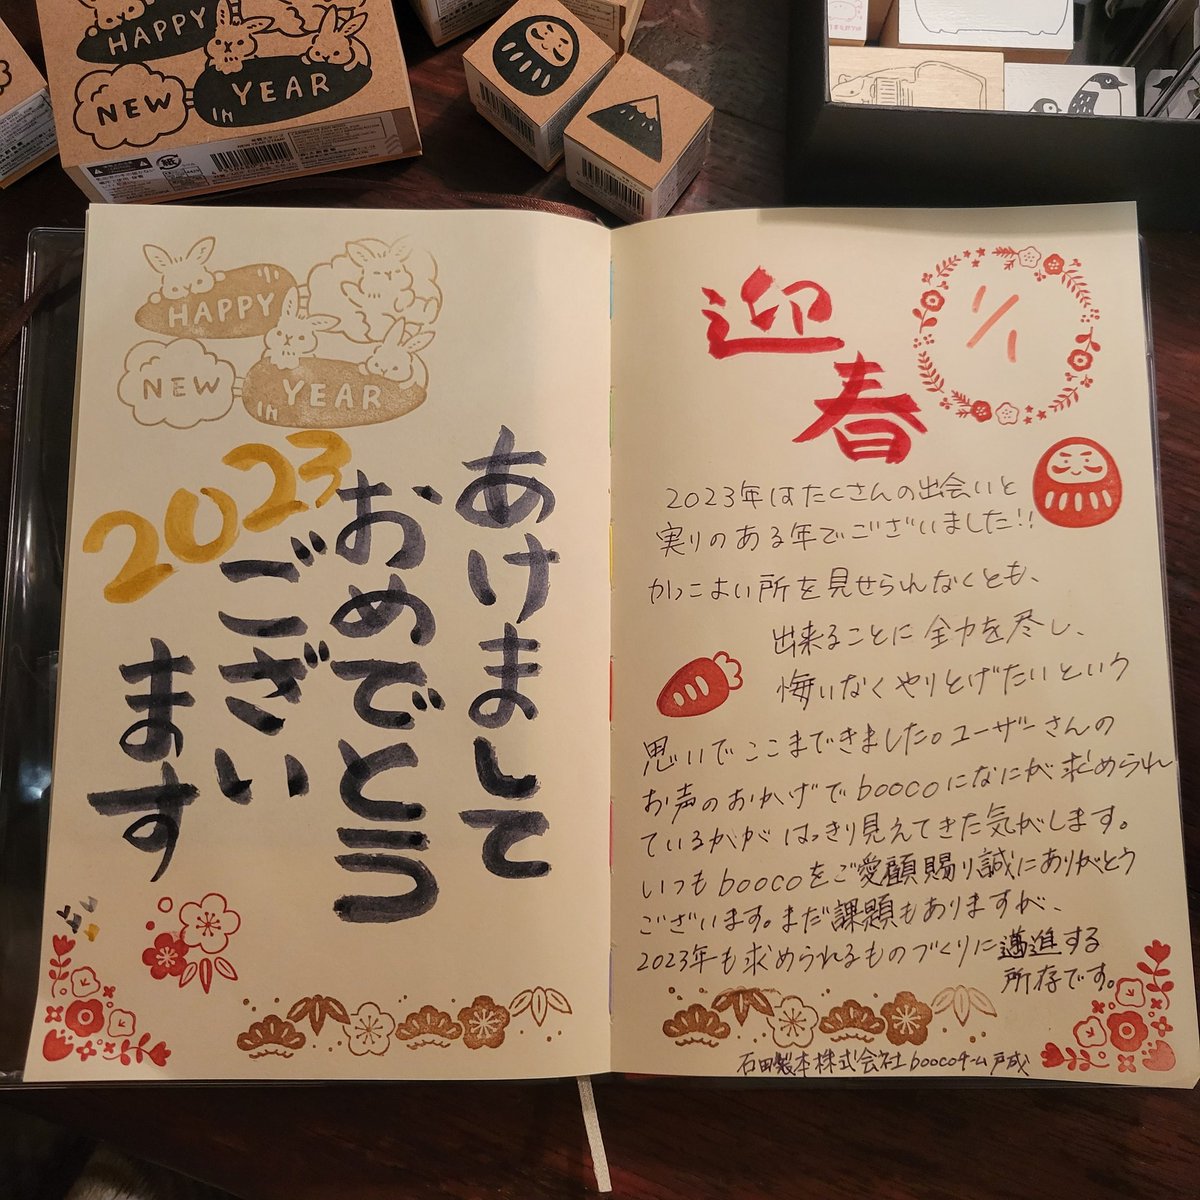 HAPPY
NEW
YEAR
HAPPY
NEW
YEAR
2023
あけまして
おめでとう
ござい
ます
迎
春
1/1
2023年はたくさんの出会いと
実りのある年でございました!!
かっこよい所を見せられなくとも、
出来ることに全力を尽し、
悔いなくやりとげたいという
思いでここまできました。ユーザーさんの
お声のおかげでboocoになにが求められ
ているかが はっきり見えてきた気がします。
いつもboocoをご愛顧賜り誠にありがとう
ございます。まだ課題もありますが、
2023年も求められるものづくりに邁進する
所存です。
石田製本株式会社boocoチーム戸成